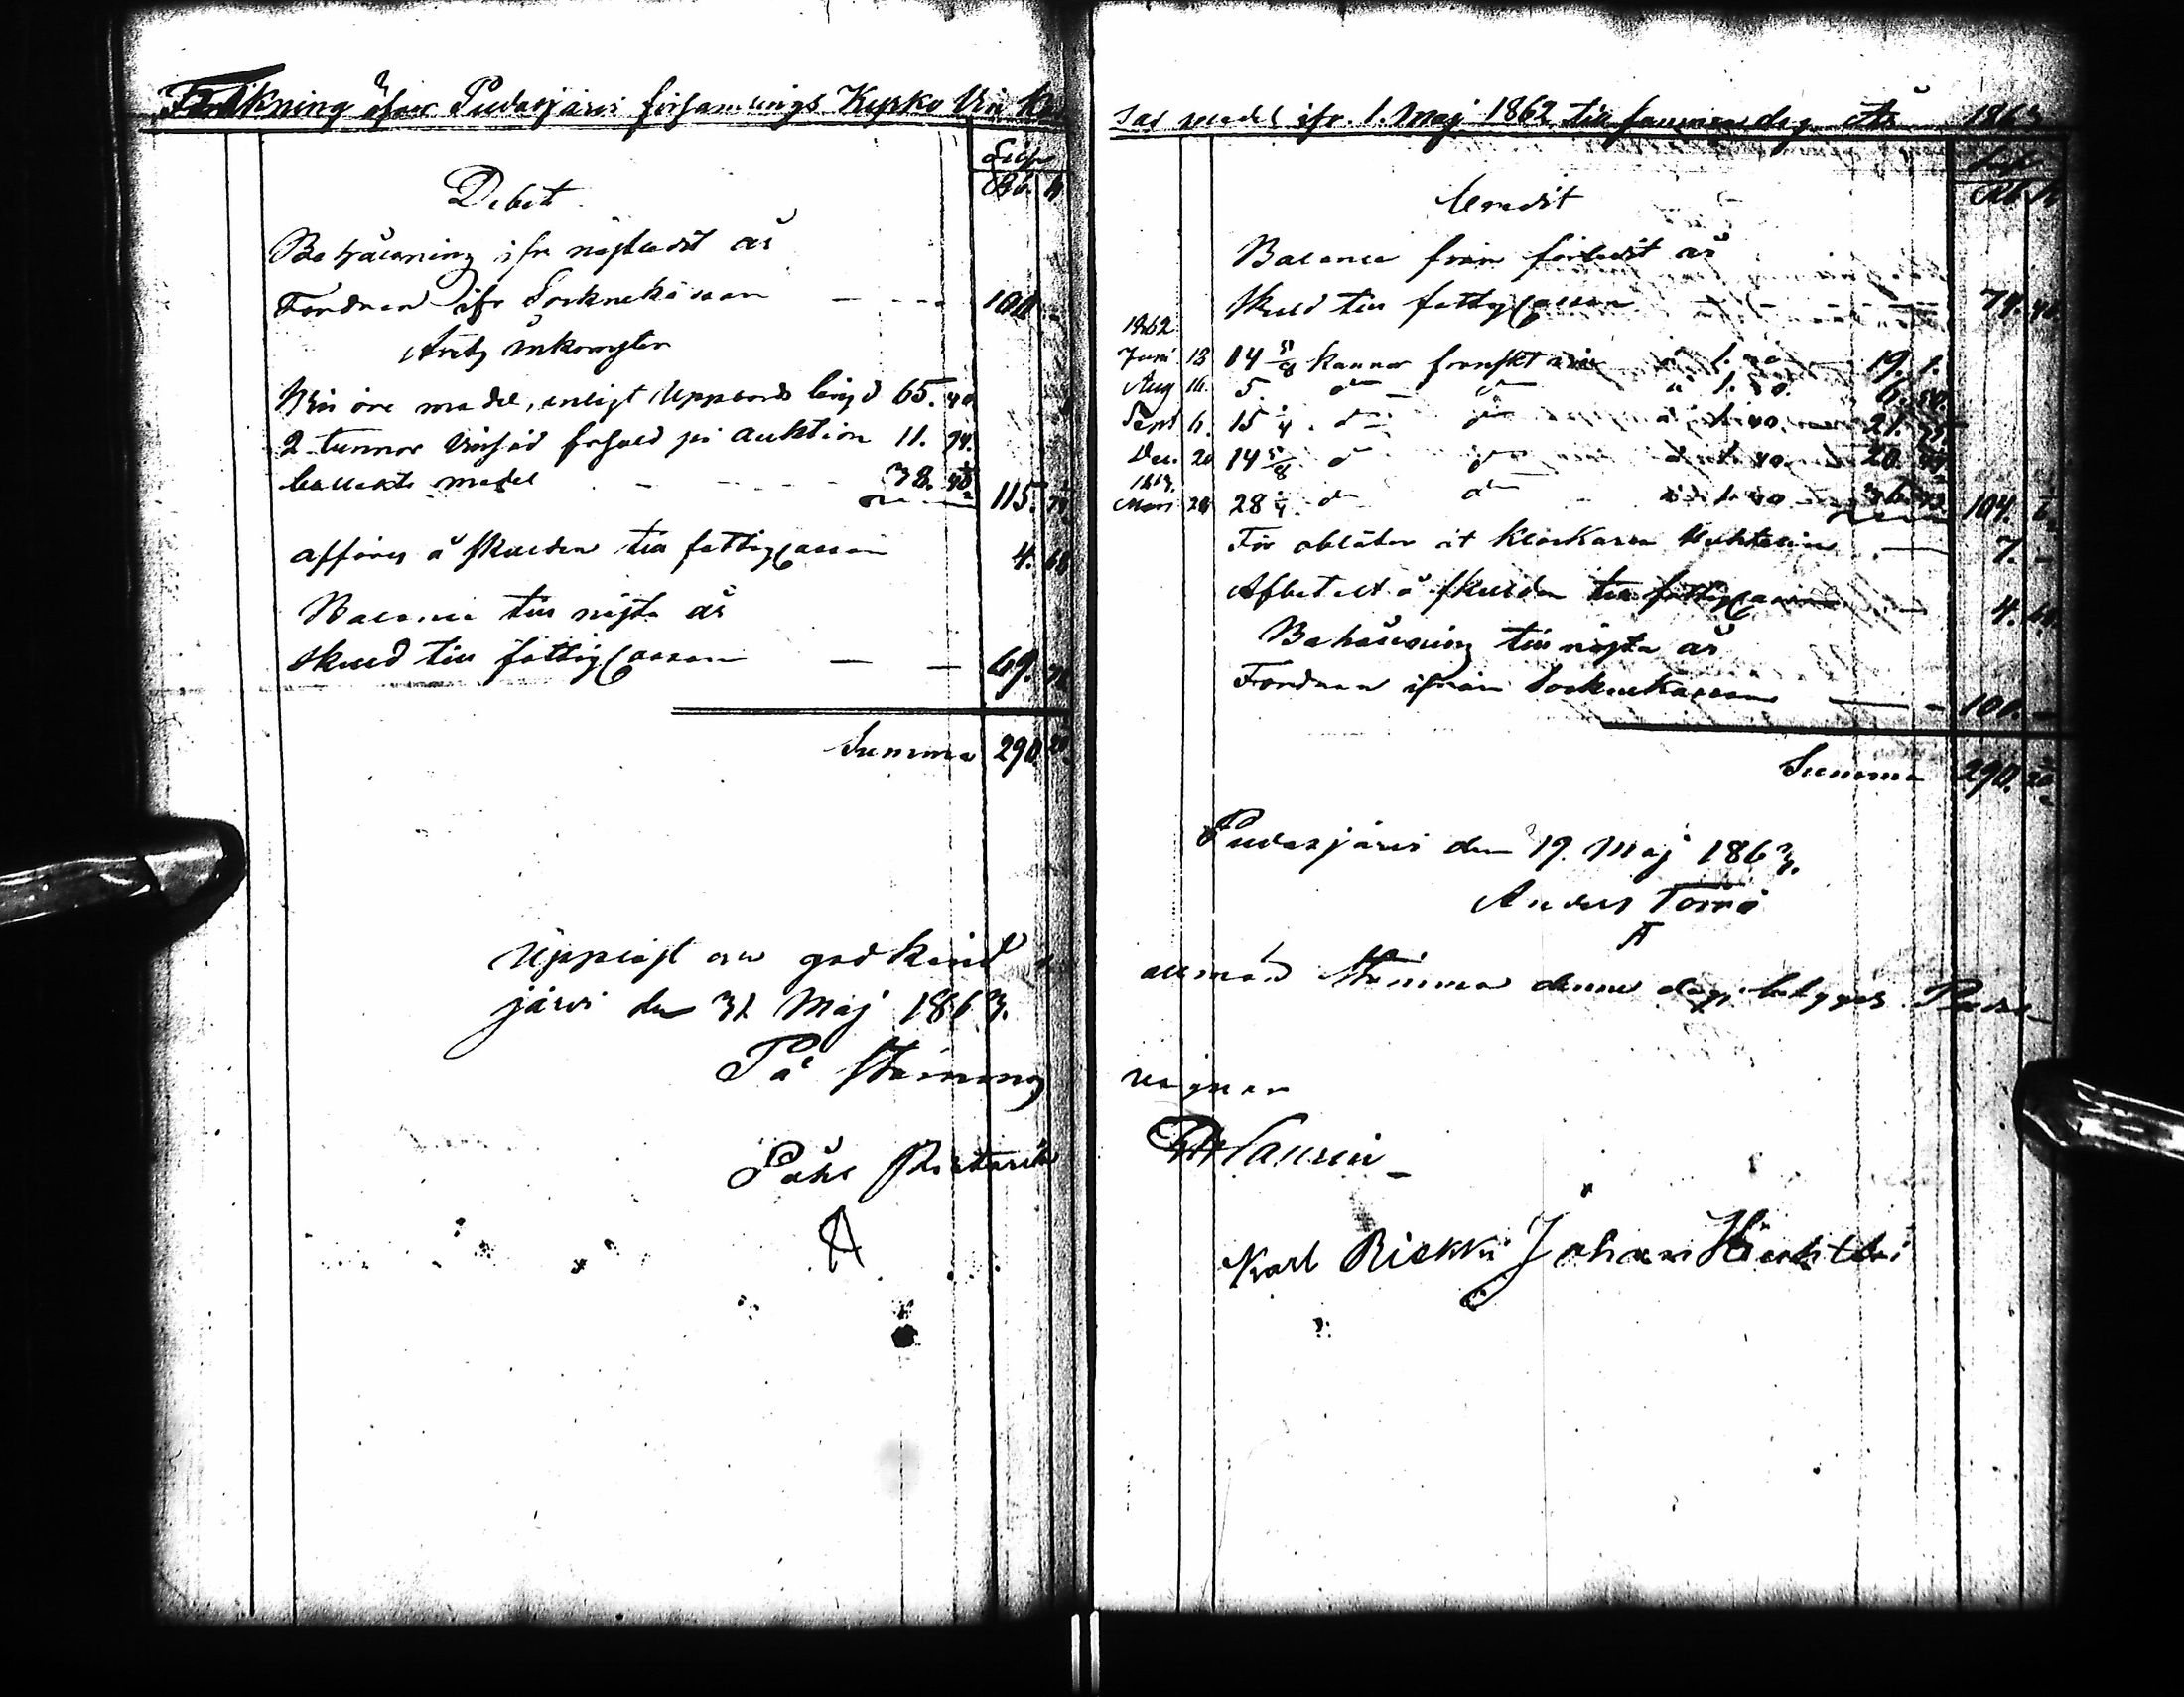 Räkning öfver Pudasjärvi församlings Kyrko Vin Kas
Silfr
Rb. K
Debet
Behållning ifr nästledit år
Fordran ifr Socknekassan — — 100 -
Årets inkomster
Vin öre medel, enligt Uppbords längd 65. 40
2 tunnor Vinsäd försåld på Auktion 11.
Collekt medel — — — 38. 115.
afföres å skulden till fattigcassan 4. 68
Balance till nästa år
Skuld till fattigcassan — — 69.
Summa 290. 20
Uppläst och godkänd
järvi den 31 Maj 1863.
På Stämmans
Påhl
sas medel ifr. 1. Maj 1862 till samma dag År 1863
Silfr
Rb K
Credit
Balance från förledit år
Skuld till fattigcassan — — — 74. 40
1862
Juni 13 14 5/8 kannor franskt vin à 1. 30 19. 1.
Aug 16. 5. do do à 1. 30. 6. 50.
Sept 6. 15 1/4. do do à 1. 40. 21. 35
Dec. 20 14 5/8 do do à 1. 40. 20.
1863.
Mars 28 1/4. do do à 1. 40 104.
För oblater åt Klockaren — 7. -
Afbetalt å skulden till fattigcassan 4. 68
Behållning till nästa år
Fordran ifrån Sockenkassan — — 100. -
Summa 290. 20
Pudasjärvi den 19. Maj 1863.
Anders Törmä
allmän Stämma denne dag, betygas Puda-
vägnar
Karl Riekki Johan